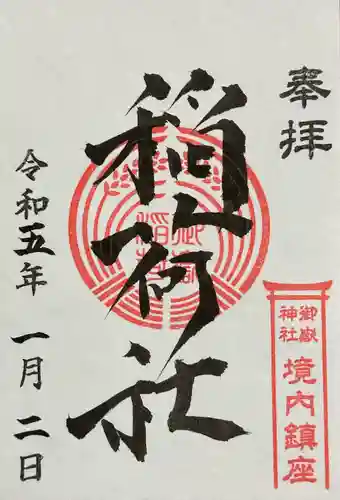 奉拝
御嶽
神社
境内鎮座
稲荷社
令和五年一月二日